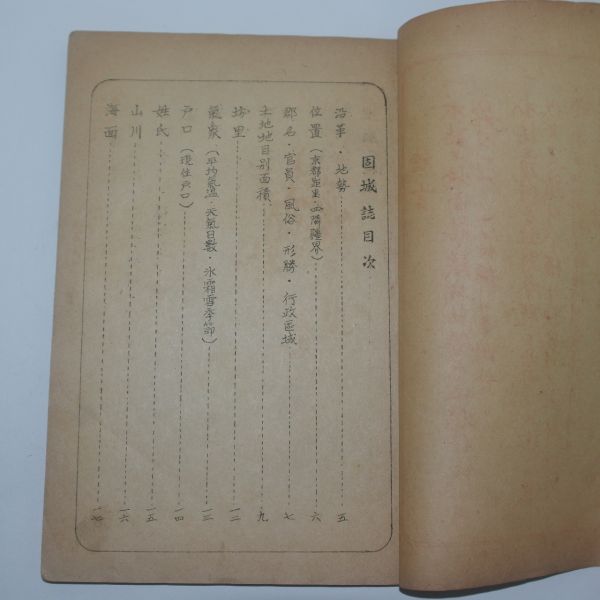 固城誌目次
沿革・地勢 五
位置(京都距里・四隣疆界) 六
郡名・官員・風俗・形勝・行政區域 七
土地地目別面積 九
坊里 一二
氣象(平均氣温・天氣日數・氷霜雪季節) 一三
戸口(現住戸口) 一四
姓氏 一五
山川 一六
海面 一七